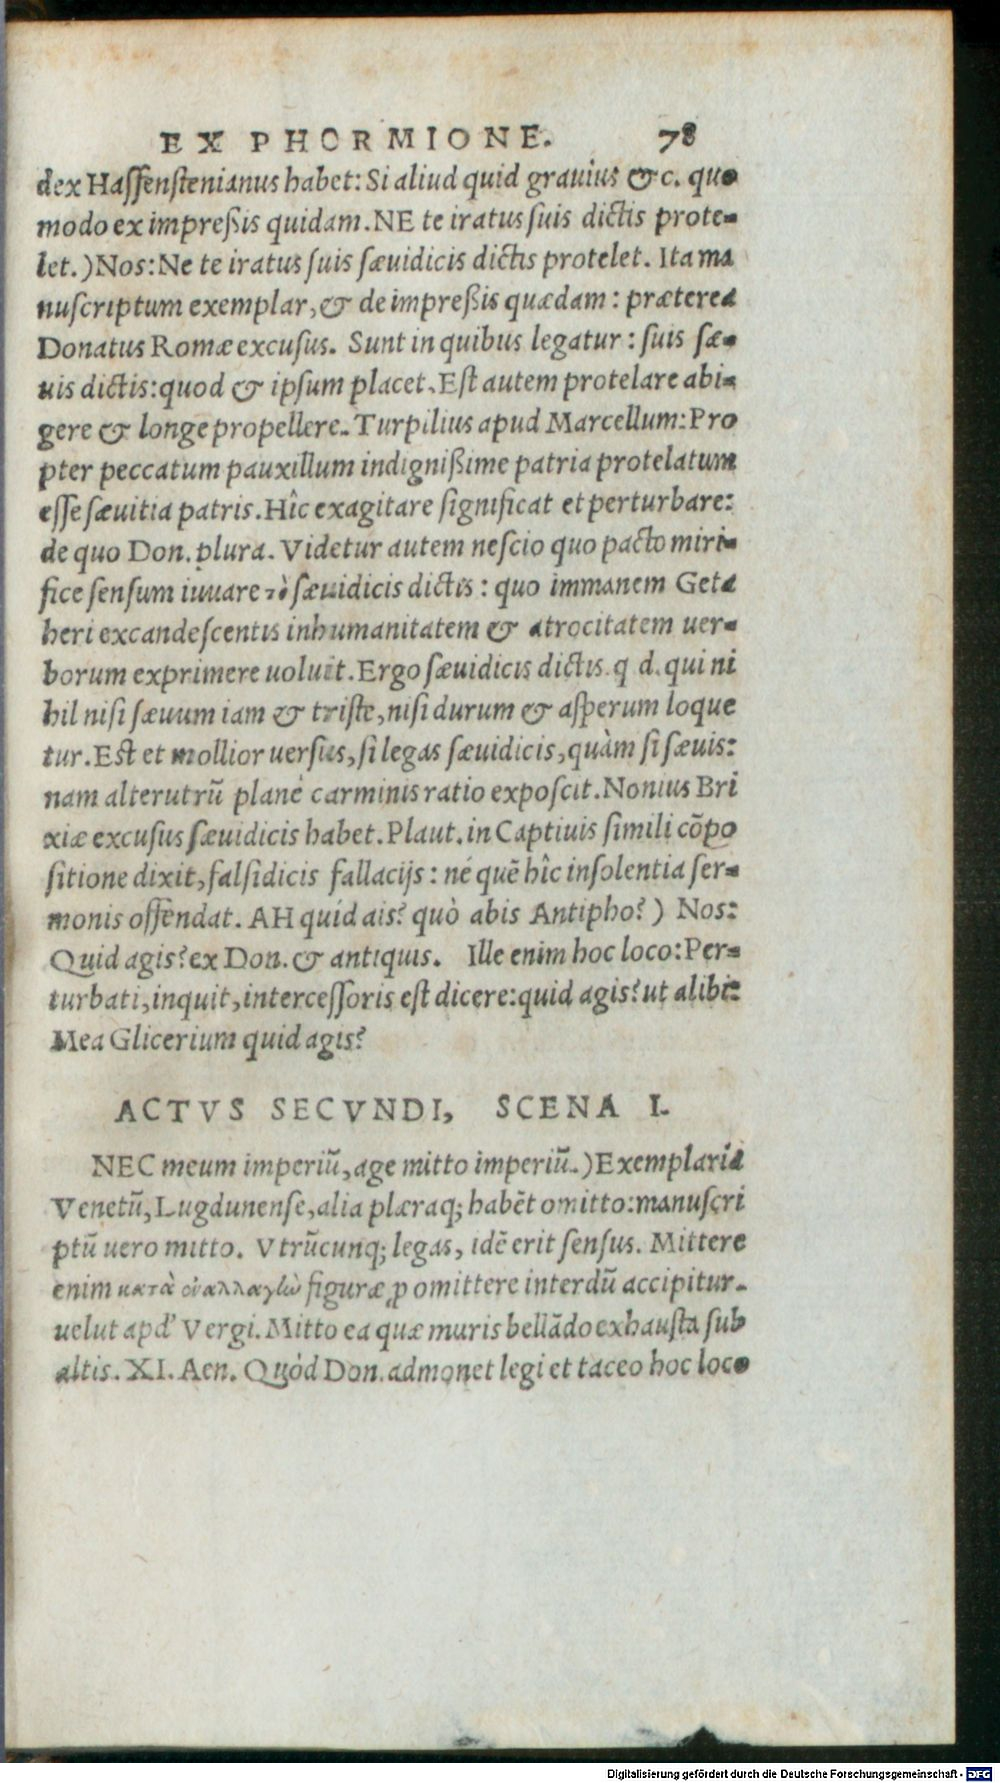 EX PHORMIONE. 78
dex Hassenstenianus habet: Si aliud quid grauius & c. quo
modo ex impreßis quidam. NE te iratus suis dictis prote-
let.) Nos: Ne te iratus suis sæuidicis dictis protelet. Ita ma
nuscriptum exemplar, & de impreßis quædam: præterea
Donatus Romæ excusus. Sunt in quibus legatur: suis sæ-
uis dictis: quod & ipsum placet. Est autem protelare abi-
gere & longe propellere. Turpilius apud Marcellum: Pro
pter peccatum pauxillum indignißime patria protelatum
esse sæuitia patris. Hîc exagitare significat et perturbare:
de quo Don. plura. Videtur autem nescio quo pacto miri-
fice sensum iuuare τὸ sæuidicis dictis: quo immanem Geta
heri excandescentis inhumanitatem & atrocitatem uer-
borum exprimere uoluit. Ergo sæuidicis dictis. q d. qui ni
hil nisi sæuum iam & triste, nisi durum & asperum loque
tur. Est et mollior uersus, si legas sæuidicis, quàm si sæuis:
nam alterutrũ planè carminis ratio exposcit. Nonius Bri
xiæ excusus sæuidicis habet. Plaut. in Captiuis simili cõpo
sitione dixit, falsidicis fallacijs: né quẽ hîc insolentia ser-
monis offendat. AH quid ais? quò abis Antipho?) Nos:
Quid agis? ex Don. & antiquis. Ille enim hoc loco: Per-
turbati, inquit, intercessoris est dicere: quid agis? ut alibi:
Mea Glicerium quid agis?
ACTVS SECVNDI, SCENA I.
NEC meum imperiũ, age mitto imperiũ.) Exemplaria
Venetũ, Lugdunense, alia plæraq; habẽt omitto: manuscri
ptũ uero mitto. Vtrũcunq; legas, idẽ erit sensus. Mittere
enim κατὰ ἐναλλαγὼ figuræ ꝓ omittere interdũ accipitur.
uelut apd' Vergi. Mitto ea quæ muris bellãdo exhausta sub
altis. XI. Aen. Quòd Don. admonet legi et taceo hoc loco
Digitalisierung gefördert durch die Deutsche Forschungsgemeinschaft - DFG